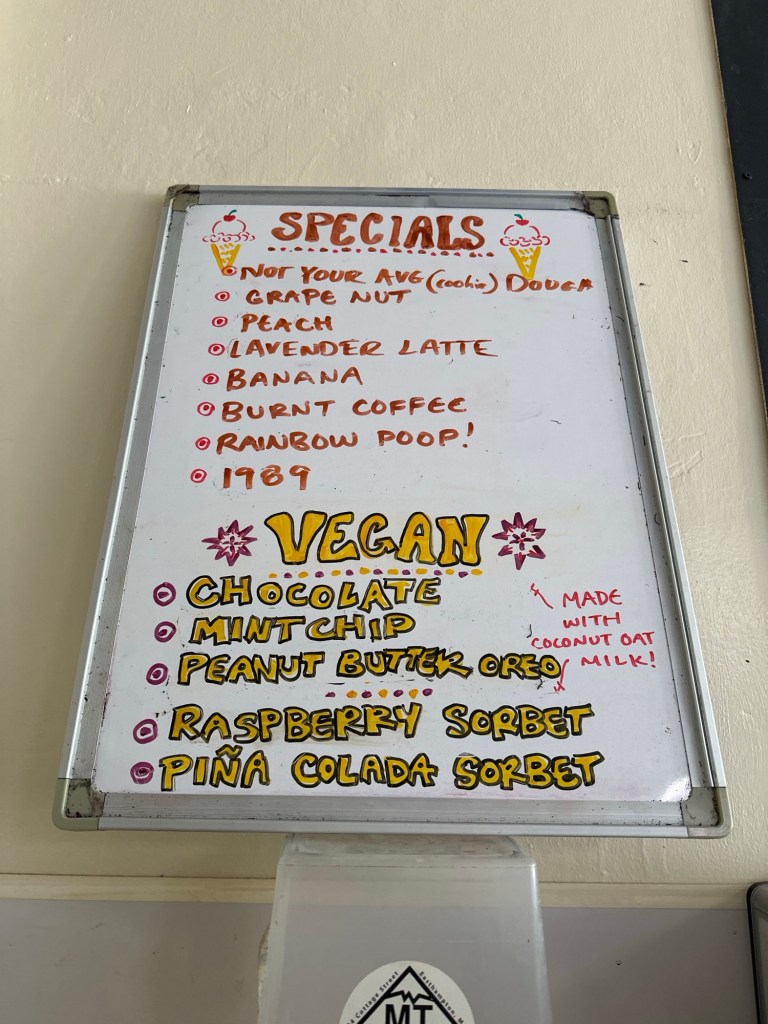 SPECIALS
NOT YOUR AVG (cookie) DOUGH
GRAPE NUT
PEACH
LAVENDER LATTE
BANANA
BURNT COFFEE
RAINBOW POOP!
1989
VEGAN
CHOCOLATE
MINT CHIP
PEANUT BUTTER OREO
MADE
WITH
COCONUT OAT
MILK!
RASPBERRY SORBET
PIÑA COLADA SORBET
Cottage Street
Easthampton,
MT